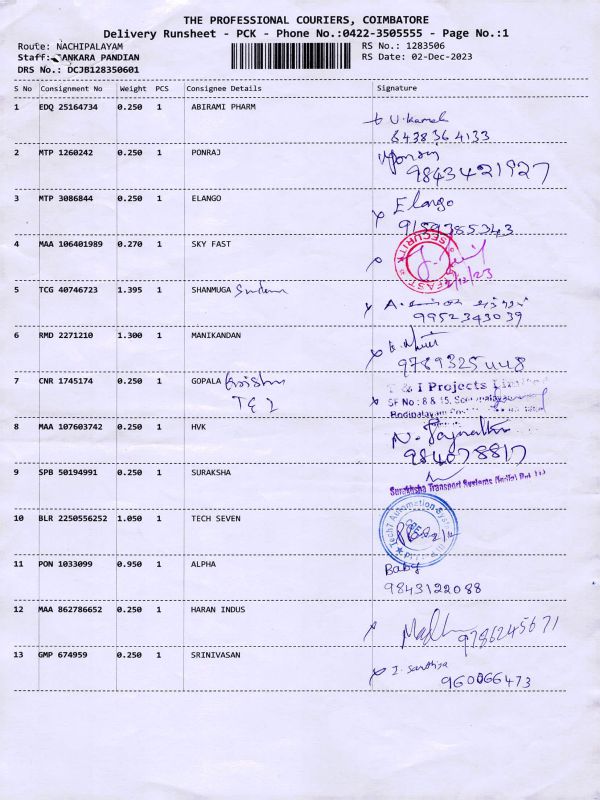 THE PROFESSIONAL COURIERS, COIMBATORE
Delivery Runsheet - PCK - Phone No.:0422-3505555 - Page No.:1
Route: NACHIPALAYAM RS No.: 1283506
Staff: SANKARA PANDIAN RS Date: 02-Dec-2023
DRS No.: DCJB128350601
S No Consignment No Weight PCS Consignee Details Signature
1 EDQ 25164734 0.250 1 ABIRAMI PHARM
U. Kamal
6438364133
2 MTP 1260242 0.250 1 PONRAJ
9843421927
3 MTP 3086844 0.250 1 ELANGO
Elango
9159385343
4 MAA 106401989 0.270 1 SKY FAST
SECURITY
FAST
2/12/23
5 TCG 40746723 1.395 1 SHANMUGA
A.
9952343039
6 RMD 2271210 1.300 1 MANIKANDAN
9789325448
7 CNR 1745174 0.250 1 GOPALA Krishn
T & I Projects Limited
SF No : 8 & 15,
8 MAA 107603742 0.250 1 HVK
N.
984078817
9 SPB 50194991 0.250 1 SURAKSHA
Suraksha Transport Systems (India) Pvt. Ltd
10 BLR 2250556252 1.050 1 TECH SEVEN
Tech7 Automation System
11 PON 1033099 0.950 1 ALPHA
Baby
9843122088
12 MAA 862786652 0.250 1 HARAN INDUS
9786245671
13 GMP 674959 0.250 1 SRINIVASAN
I. Santhiya
960066473